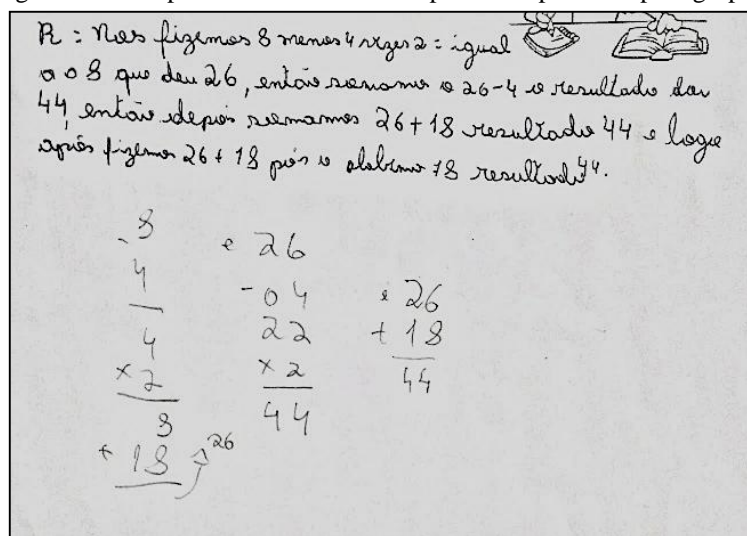 R = Nos fizemos 8 menos 4 vezes 2 = igual
a o 8 que deu 26, então somamos o 26-4 o resultado dar
44, então depois somamos 26+18 resultado 44 e logo
após fizemos 26+18 pois o 18 resultado 44.
- 8
4
4
x 2
8
+ 18 26
e 26
- 04
22
x 2
44
e 26
+ 18
44